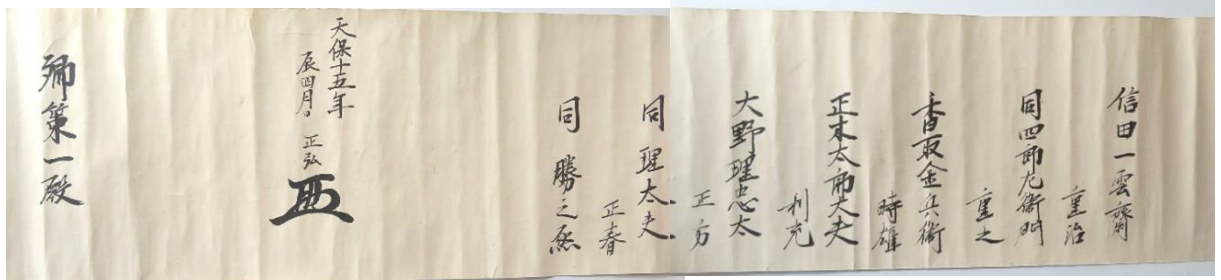 信田一雲齋
重治
同四郎左衛門
重之
香取金兵衛
時雄
正木太郎大夫
利充
大野理忠太
正方
同 理太夫
正春
同 勝之烝
天保十五年
辰四月日 正弘
第一殿